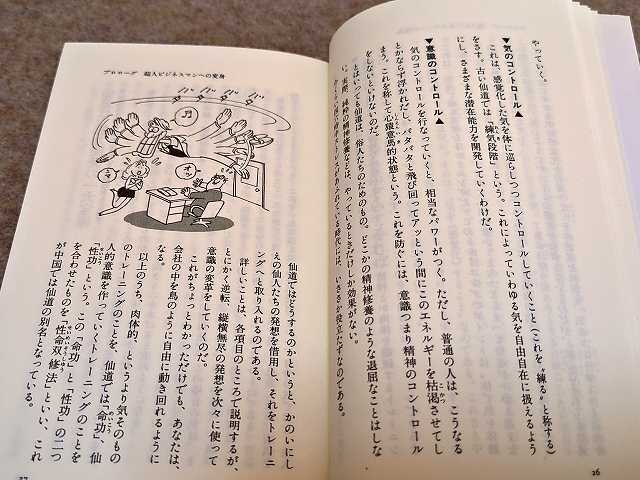 やっていく。
▼気のコントロール▲
これは、感覚化した気を体に巡らしつつコントロールしていくこと（これを〝練る〟と称する）
をさす。古い仙道では「練気段階」という。これによっていわゆる気を自由自在に扱えるよう
にし、さまざまな潜在能力を開発していくわけだ。
▼意識のコントロール▲
気のコントロールを行なっていくと、相当なパワーがつく。ただし、普通の人は、こうなる
とかならず浮かれだし、バタバタと飛び回ってアッという間にこのエネルギーを枯渇させてし
まう。これを称して心猿意馬的状態という。これを防ぐには、意識つまり精神のコントロール
をしないといけないのだ。
とはいっても仙道は、俗人たちのためのもの。どこかの精神修養のような退屈なことはしな
い。実際、純粋の精神修養などは、やっているときだけしか効果がない。
26
プロローグ 超人ビジネスマンへの変身
バタ
バタ
バタ
バタ
仙道ではどうするのかというと、かのいにし
えの仙人たちの発想を借用し、それをトレーニ
ングへと取り入れるのである。
詳しいことは、各項目のところで説明するが、
とにかく逆転、縦横無尽の発想を次々に使って
意識の変革をしていくのだ。
これがちょっとわかっただけでも、あなたは、
会社の中を鳥のように自由に動き回れるように
なる。
以上のうち、肉体的、というより気そのもの
のトレーニングのことを、仙道では「命功」、仙
人的意識を作っていくトレーニングのことを
「性功」という。この「命功」と「性功」の二つ
を合わせたものを「性命双修法」といい、これ
が中国では仙道の別名となっている。
27